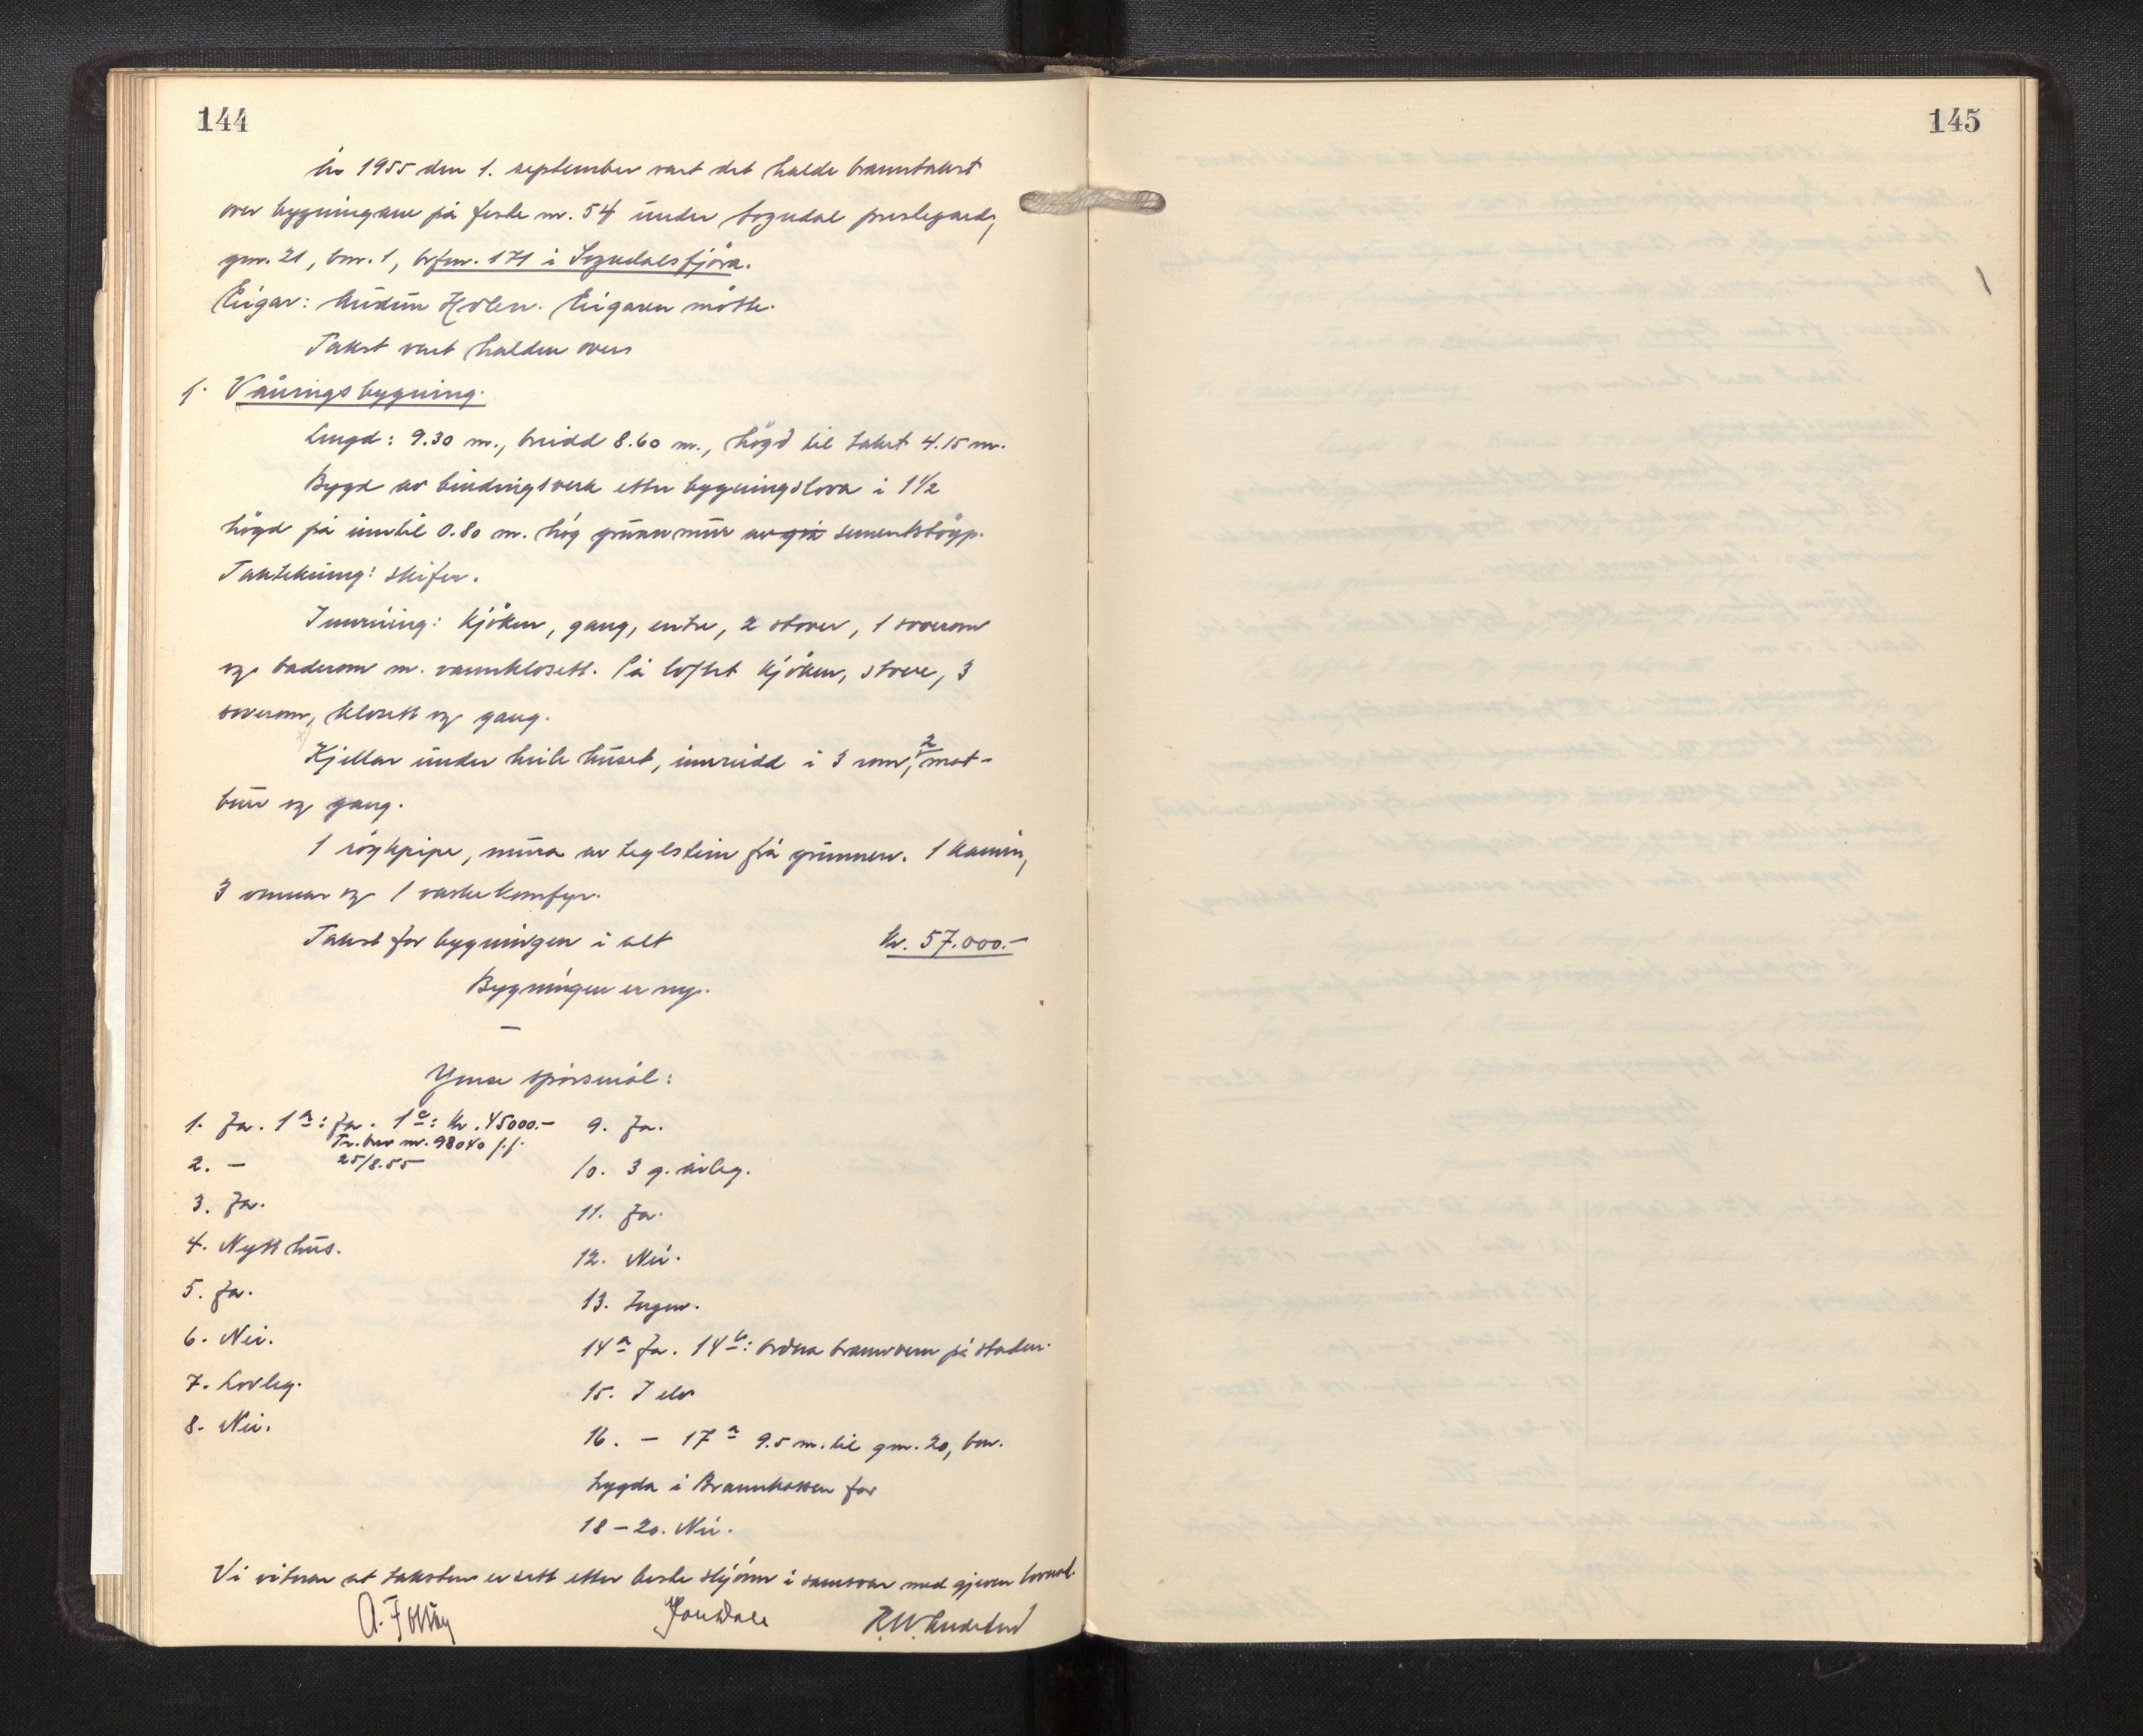 144
År 1955 den 1. september vart det halde branntakst
over bygningane på feste nr. 54 under Sogndal prestegard,
gnr. 21, bnr. 1, brfnr. 171 i Sogndalsfjøra.
Eigar: Audun Holen. Eigaren møtte.
Takst vart halden over
1. Våningsbygning.
Lengd: 9.30 m., breidd 8.60 m., högd til taket 4.15 m.
Bygd av bindingsverk etter bygningslova i 1 1/2
högd på inntil 0.80 m. høg grunnmur av sementstöyp.
Taktekning: skifer.
Innreiing: kjöken, gang, entre, 2 stover, 1 soverom
og baderom m. vannklosett. På loftet kjöken, stove, 3
soverom, klosett og gang.
Kjellar under heile huset, innreidd i 3 rom, 2 mat-
bur og gang.
1 röykpipe, mura av teglstein frå grunnen. 1 kamin,
3 omnar og 1 vaskekomfyr.
Takst for bygningen i alt kr. 57.000.-
Bygningen er ny.
–
Ymse spörsmål:
1. Ja. 1a: Ja. 1c: kr. 45000.-
Tr. brev nr. 98040 f.f.
25/8.55
2. –
3. Ja.
4. Nytt hus.
5. Ja.
6. Nei.
7. Lovleg.
8. Nei.
9. Ja.
10. 3 g. årleg.
11. Ja.
12. Nei.
13. Ingen.
14a Ja. 14b: Ordna brannvern på staden.
15. I elv
16. – 17a 9.5 m. til gnr. 20, bnr.
trygda i Brannkassen for
18 – 20. Nei.
Vi vitnar at taksten er sett etter beste skjönn i samsvar med gjeven lovnad.
145